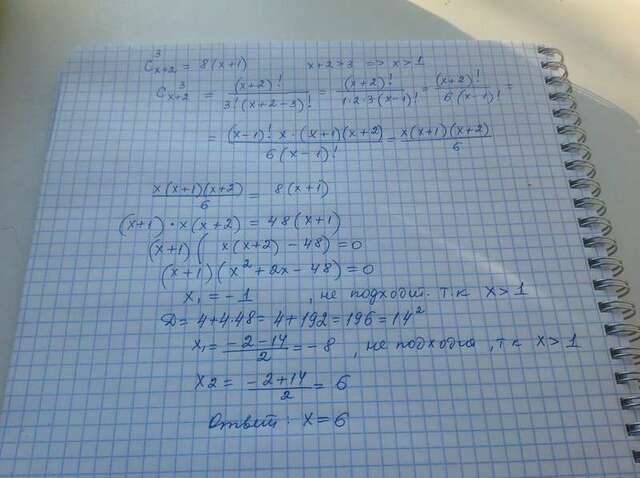 C³ₓ₊₂ = 8(x+1) x+2>3 => x>1
C³ₓ₊₂ = (x+2)!/3!(x+2-3)! = (x+2)!/1·2·3(x-1)! = (x+2)!/6(x-1)! =
= (x-1)! x·(x+1)(x+2)/6(x-1)! = x(x+1)(x+2)/6
x(x+1)(x+2)/6 = 8(x+1)
(x+1)·x(x+2) = 48(x+1)
(x+1)( x(x+2)-48) = 0
(x+1)(x²+2x-48) = 0
x₁ = -1 , не подходит. т.к x>1
D = 4+4·48 = 4+192 = 196 = 14²
x₁ = -2-14/2 = -8 , не подходит , т к x>1
x2 = -2+14/2 = 6
Ответ: x=6